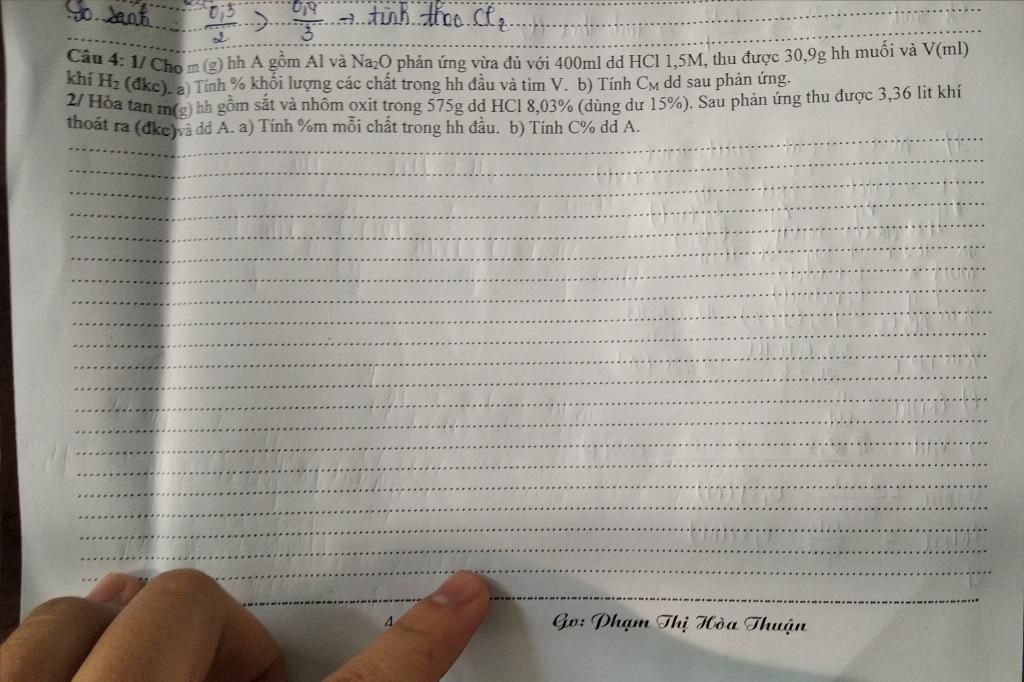 So sánh 0,3/2 > 0,4/3 → tính theo Cl₂
Câu 4: 1/ Cho m (g) hh A gồm Al và Na₂O phản ứng vừa đủ với 400ml dd HCl 1,5M, thu được 30,9g hh muối và V(ml)
khí H₂ (đkc). a) Tính % khối lượng các chất trong hh đầu và tìm V. b) Tính C_M dd sau phản ứng.
2/ Hòa tan m(g) hh gồm sắt và nhôm oxit trong 575g dd HCl 8,03% (dùng dư 15%). Sau phản ứng thu được 3,36 lit khí
thoát ra (đkc)và dd A. a) Tính %m mỗi chất trong hh đầu. b) Tính C% dd A.
4
Gv: Phạm Thị Hòa Thuận